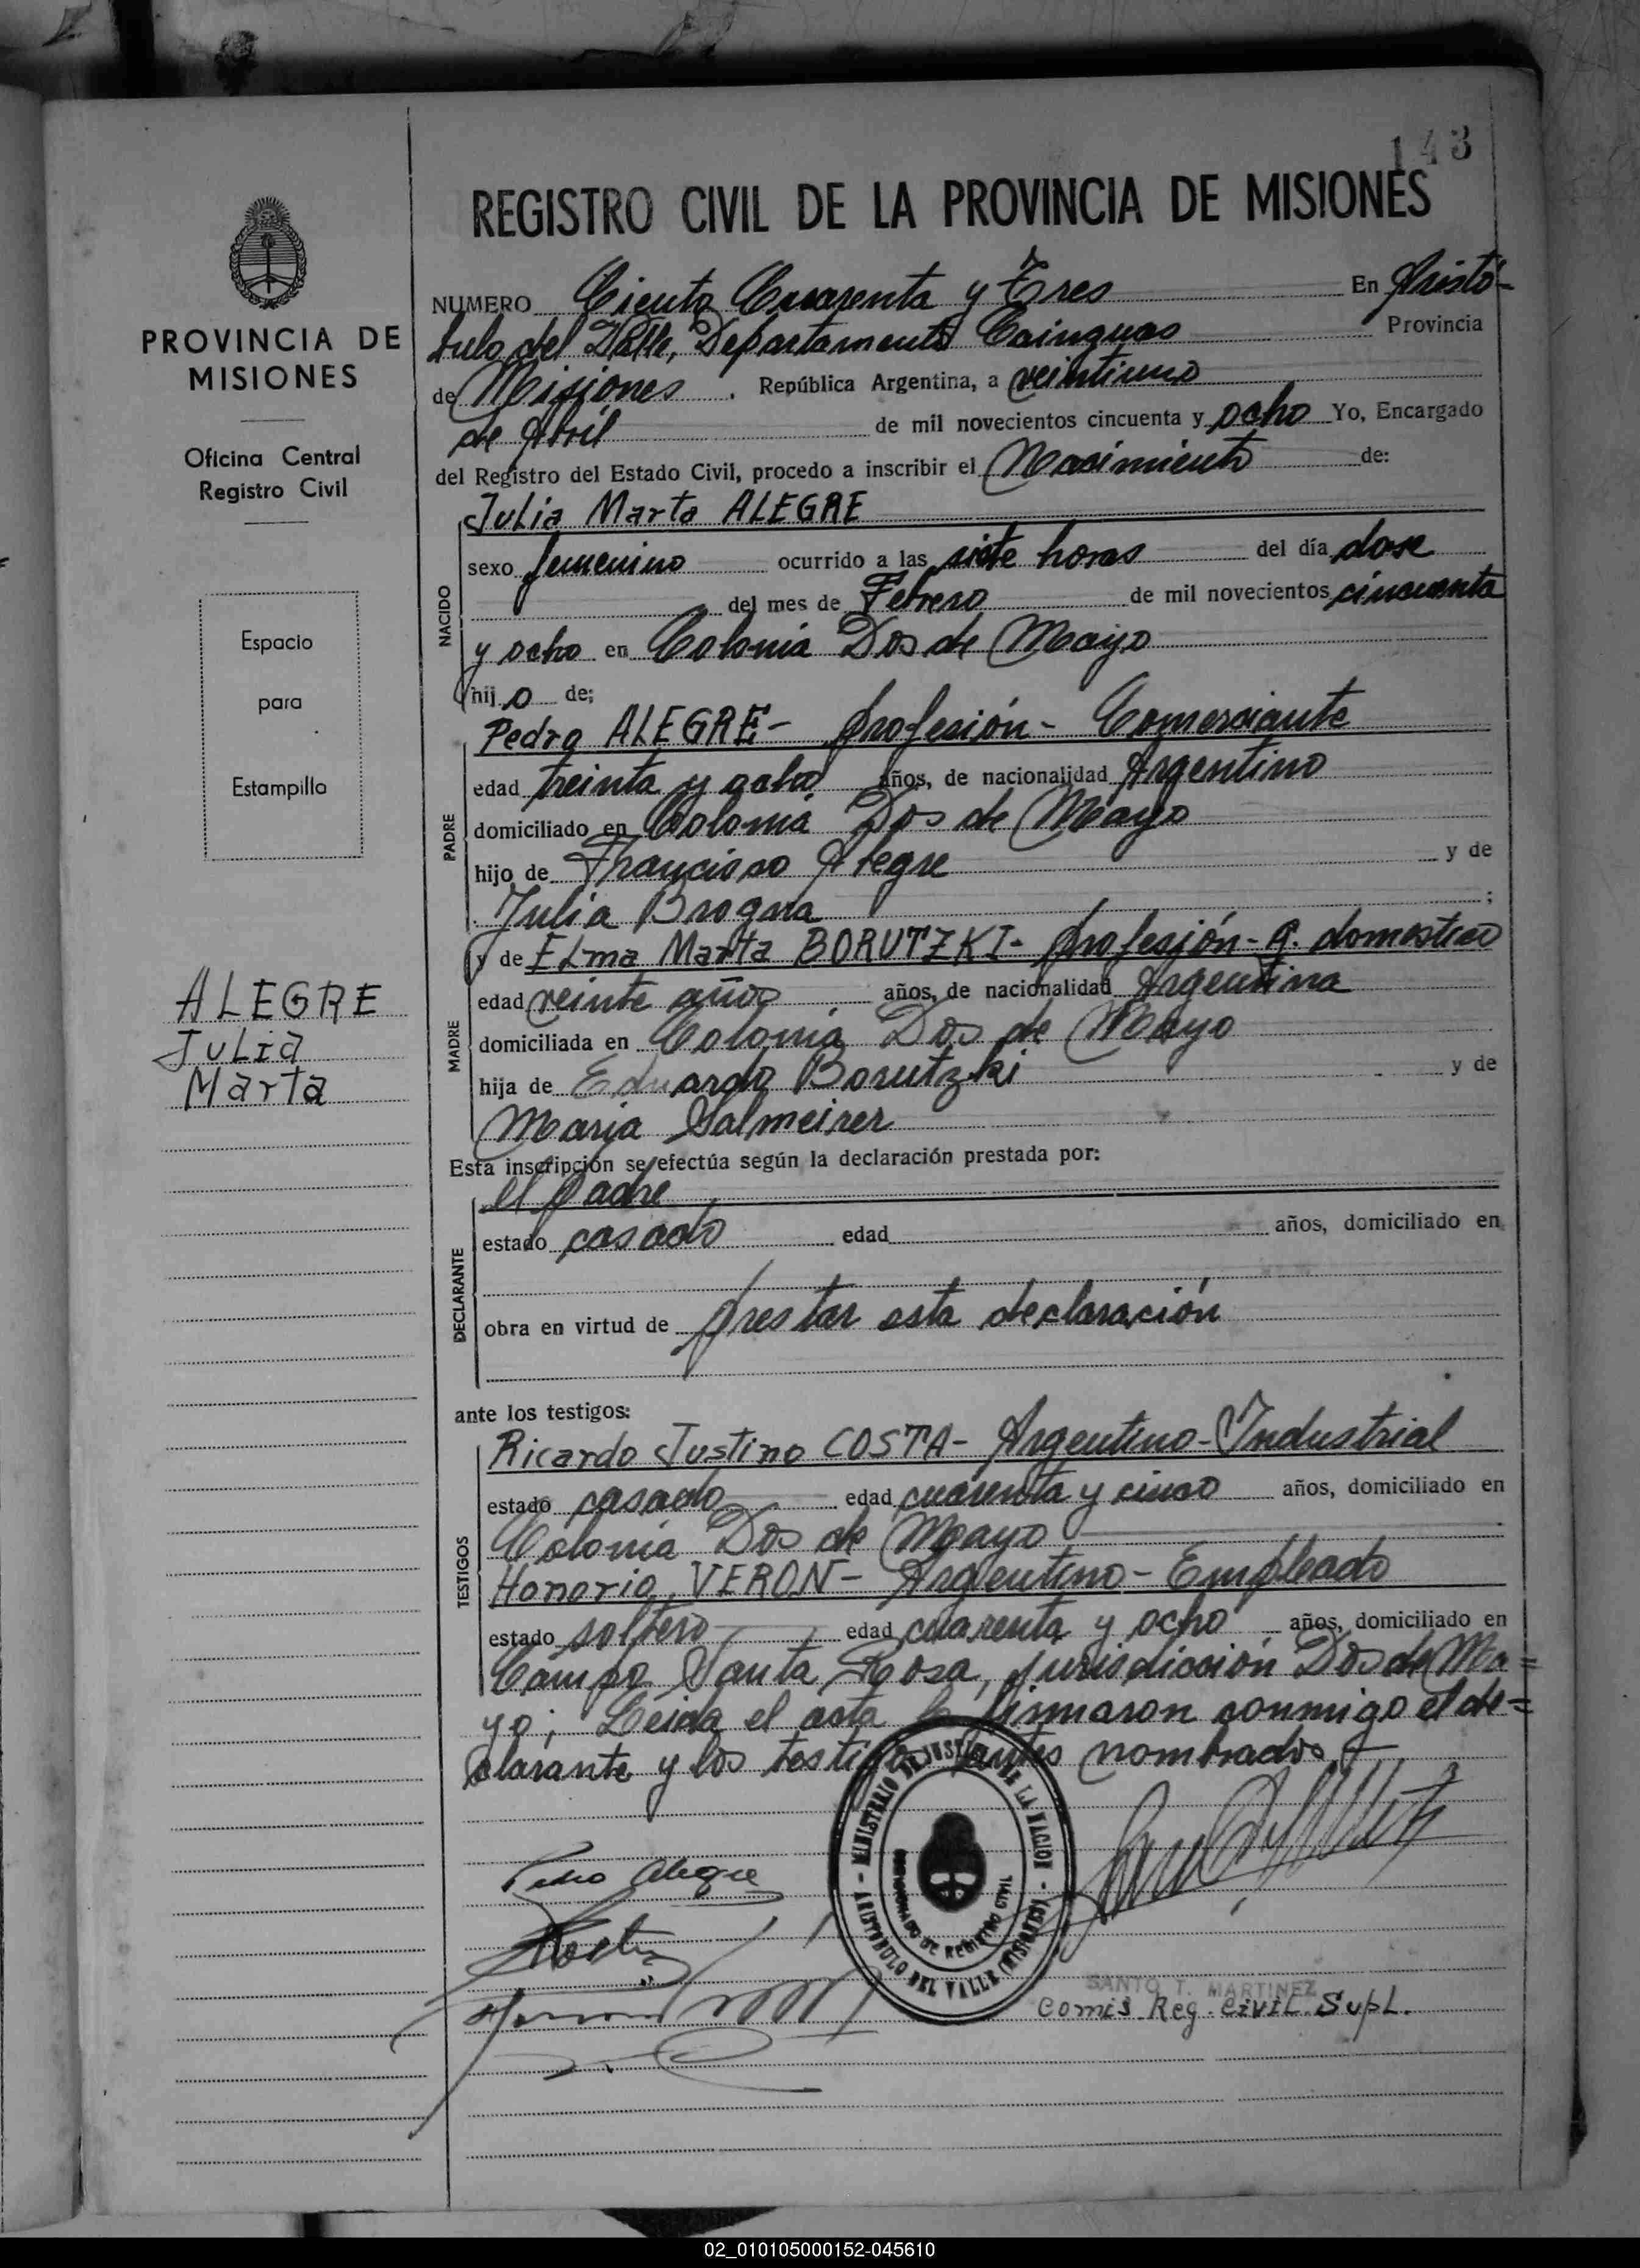 143
REGISTRO CIVIL DE LA PROVINCIA DE MISIONES
PROVINCIA DE
MISIONES
Oficina Central
Registro Civil
Espacio
para
Estampilla
ALEGRE
Julia
Marta
NUMERO Ciento Cuarenta y Tres En Aristó-
bulo del Valle, Departamento Cainguas Provincia
de Misiones. República Argentina, a veintiuno
de Abril de mil novecientos cincuenta y ocho Yo, Encargado
del Registro del Estado Civil, procedo a inscribir el Nacimiento de:
NACIDO
Julia Marta ALEGRE
sexo femenino ocurrido a las siete horas del día dose
del mes de Febrero de mil novecientos cincuenta
y ocho en Colonia Dos de Mayo
hijo de;
PADRE
Pedro ALEGRE- profesión- Comerciante
edad treinta y ocho años, de nacionalidad Argentino
domiciliado en Colonia Dos de Mayo
hijo de Francisco Alegre y de
Julia Brogna;
MADRE
y de ELma Marta BORUTZKI- profesión- q. domestico
edad veinte años años, de nacionalidad Argentina
domiciliada en Colonia Dos de Mayo
hija de Eduardo Borutzki y de
Maria Galmeirer
Esta inscripción se efectúa según la declaración prestada por:
DECLARANTE
el padre
estado casado edad años, domiciliado en
obra en virtud de prestar esta declaración
ante los testigos:
TESTIGOS
Ricardo Justino COSTA- Argentino-Industrial
estado casado edad cuarenta y cinco años, domiciliado en
Colonia Dos de Mayo
Honorio VERON- Argentino- Empleado
estado soltero edad cuarenta y ocho años, domiciliado en
Campo Santa Rosa, jurisdicción Dos de Ma=
yo; Leida el acta la firmaron conmigo el de=
clarante y los testigos antes nombrados.-
Pedro Alegre
MINISTERIO DE JUSTICIA DE LA NACION
ARISTOBULO DEL VALLE (MISIONES)
DE REGISTRO CIVIL
SANTO T. MARTINEZ
Comis Reg. CiViL SupL.
02_010105000152-045610